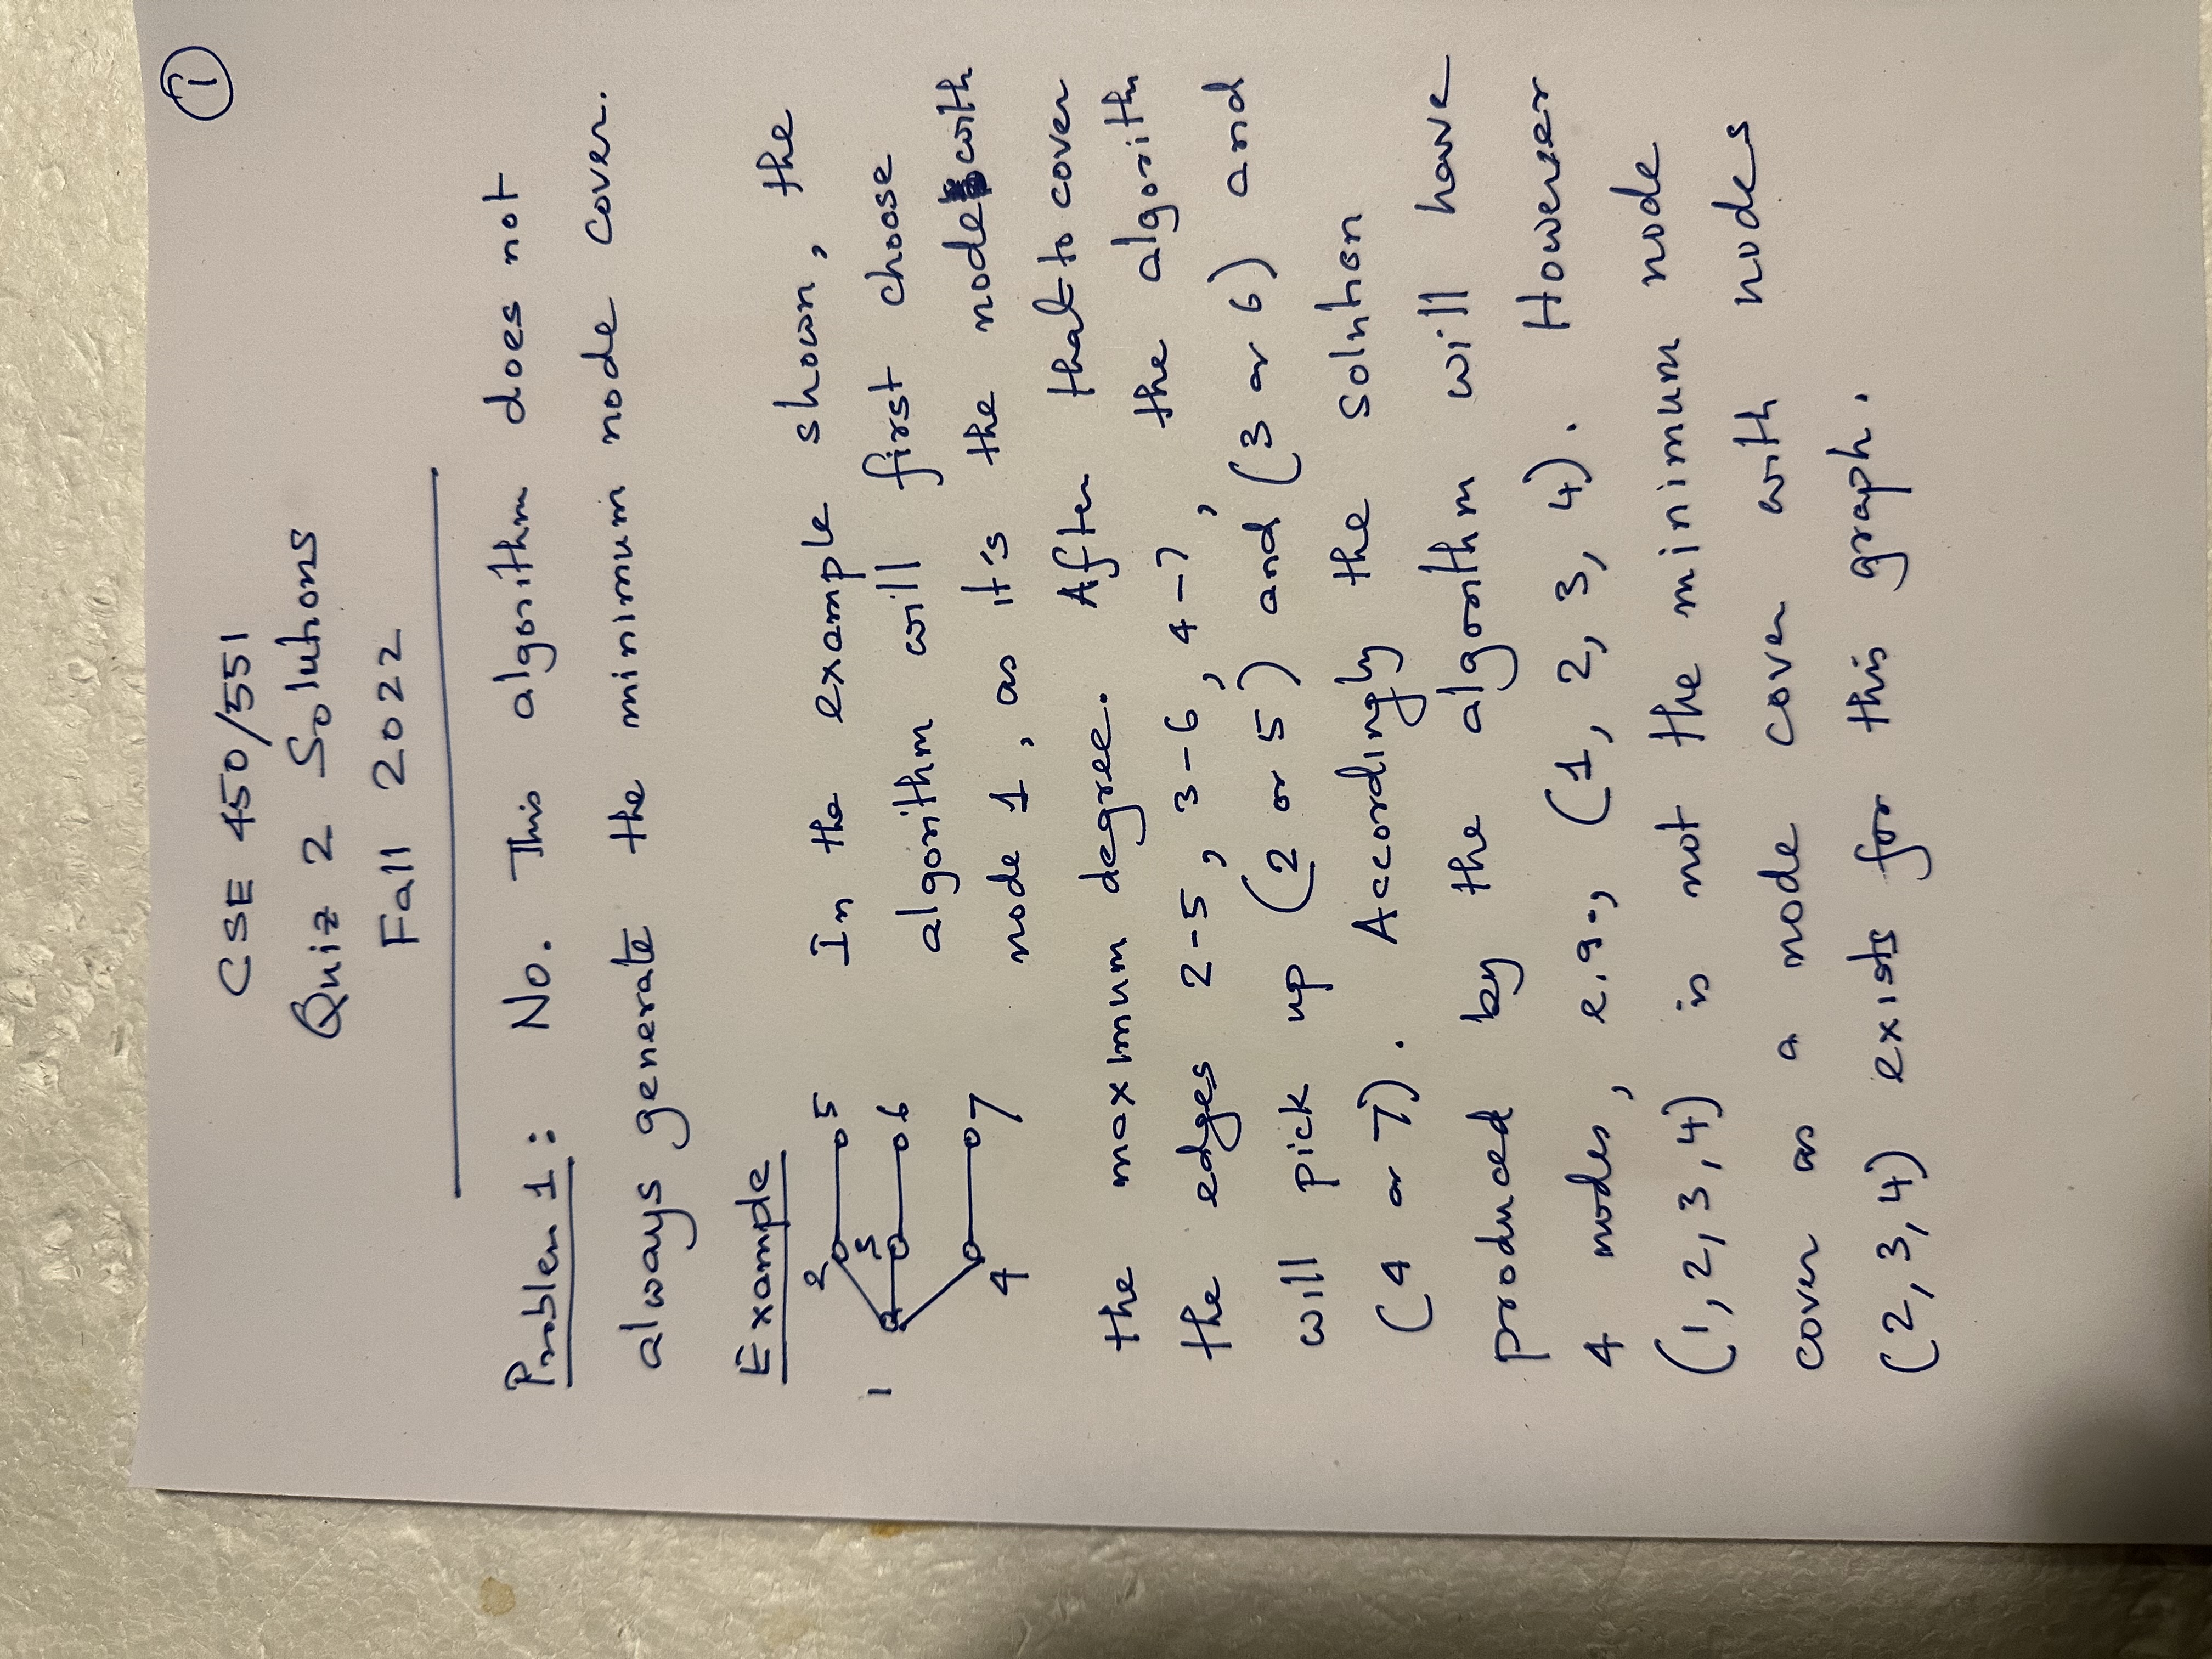 1
CSE 450/551
Quiz 2 Solutions
Fall 2022
Problem 1: No. This algorithm does not
always generate the minimum node cover.
Example
2 5
3
1 6
4 7
In the example shown, the
algorithm will first choose
node 1, as it's the node with
the maximum degree. After that to cover
the edges 2-5, 3-6, 4-7, the algorithm
will pick up (2 or 5) and (3 or 6) and
(4 or 7). Accordingly the solution
produced by the algorithm will have
4 nodes, e.g., (1, 2, 3, 4). However
(1, 2, 3, 4) is not the minimum node
cover as a node cover with nodes
(2, 3, 4) exists for this graph.